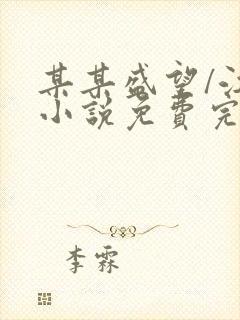 某某盛望/江
小说免费完
李霖